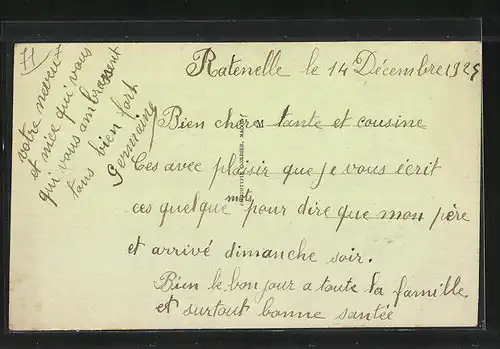 Ratenelle le 14 Décembre 1925
Bien chere tante et cousine
Ces avec plaisir que je vous écrit
ces quelque mots pour dire que mon père
et arrivé dimanche soir.
Bien le bonjour a toute la famille
et surtout bonne santée
votre neveu
et niece qui vous
qui vous ambrassent
tous bien fort
Germaine